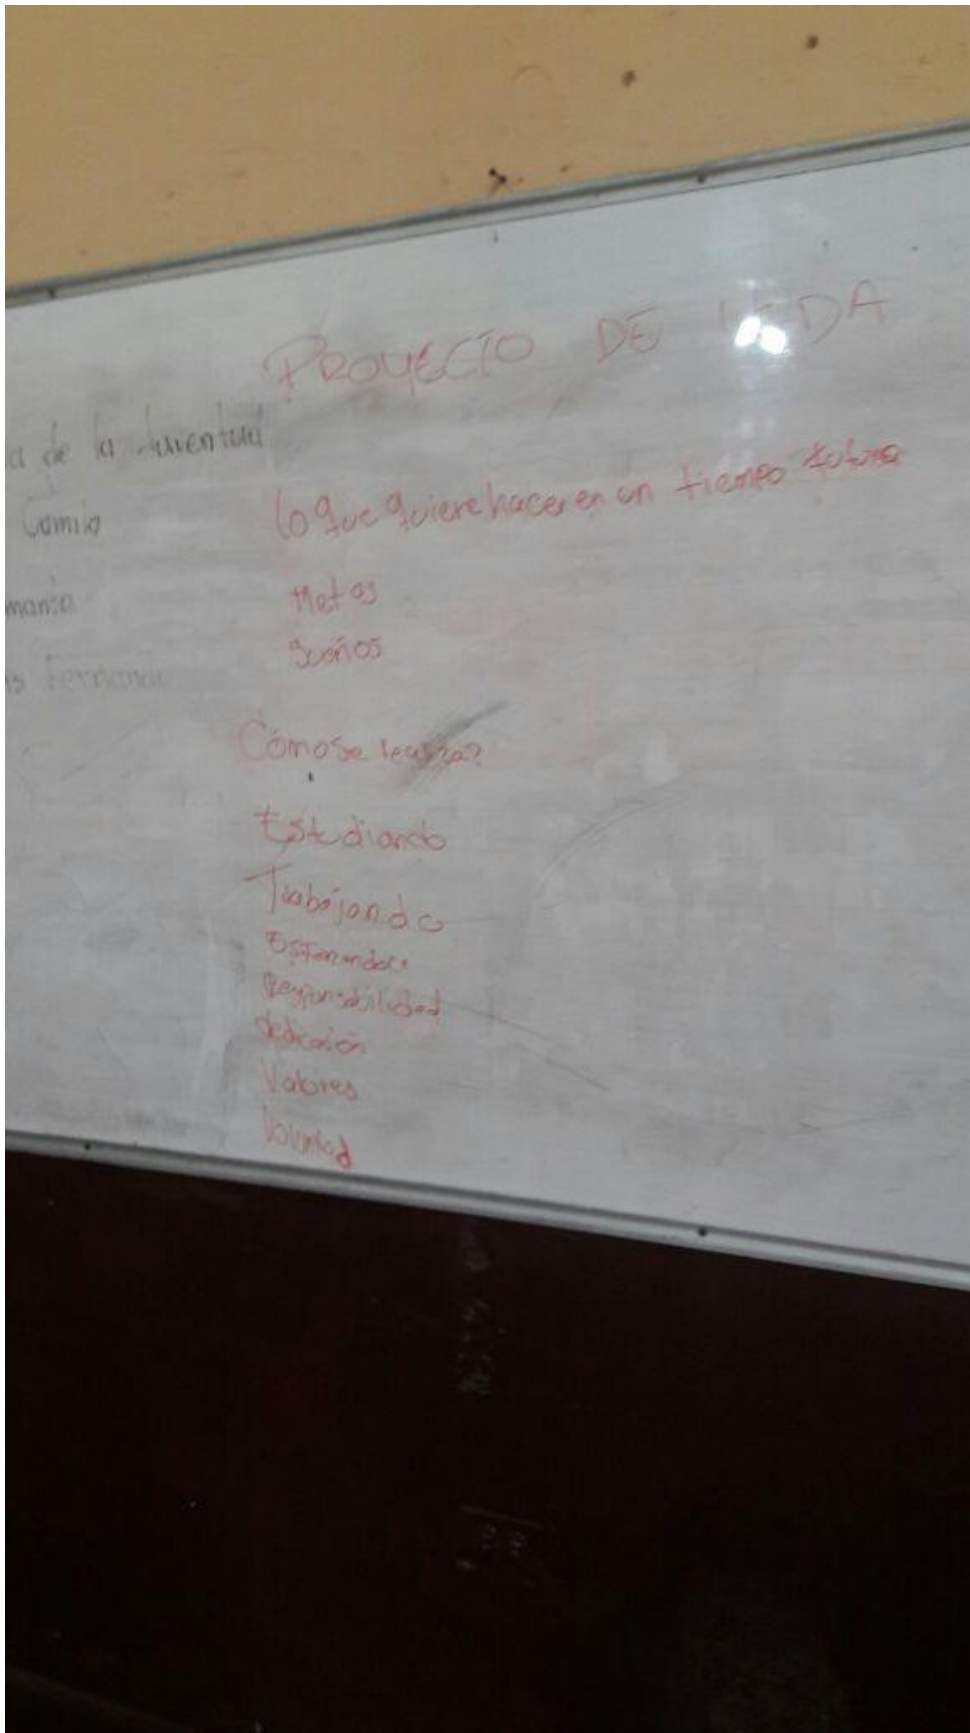 PROYECTO DE VIDA
a de la Juventud
Lo que quiere hacer en un tiempo futuro
Camilo
Metas
Sueños
Fernando
Cómo se realiza?
Estudiando
Trabajando
Esforzandoce
Responsabilidad
dedicación
Valores
Voluntad